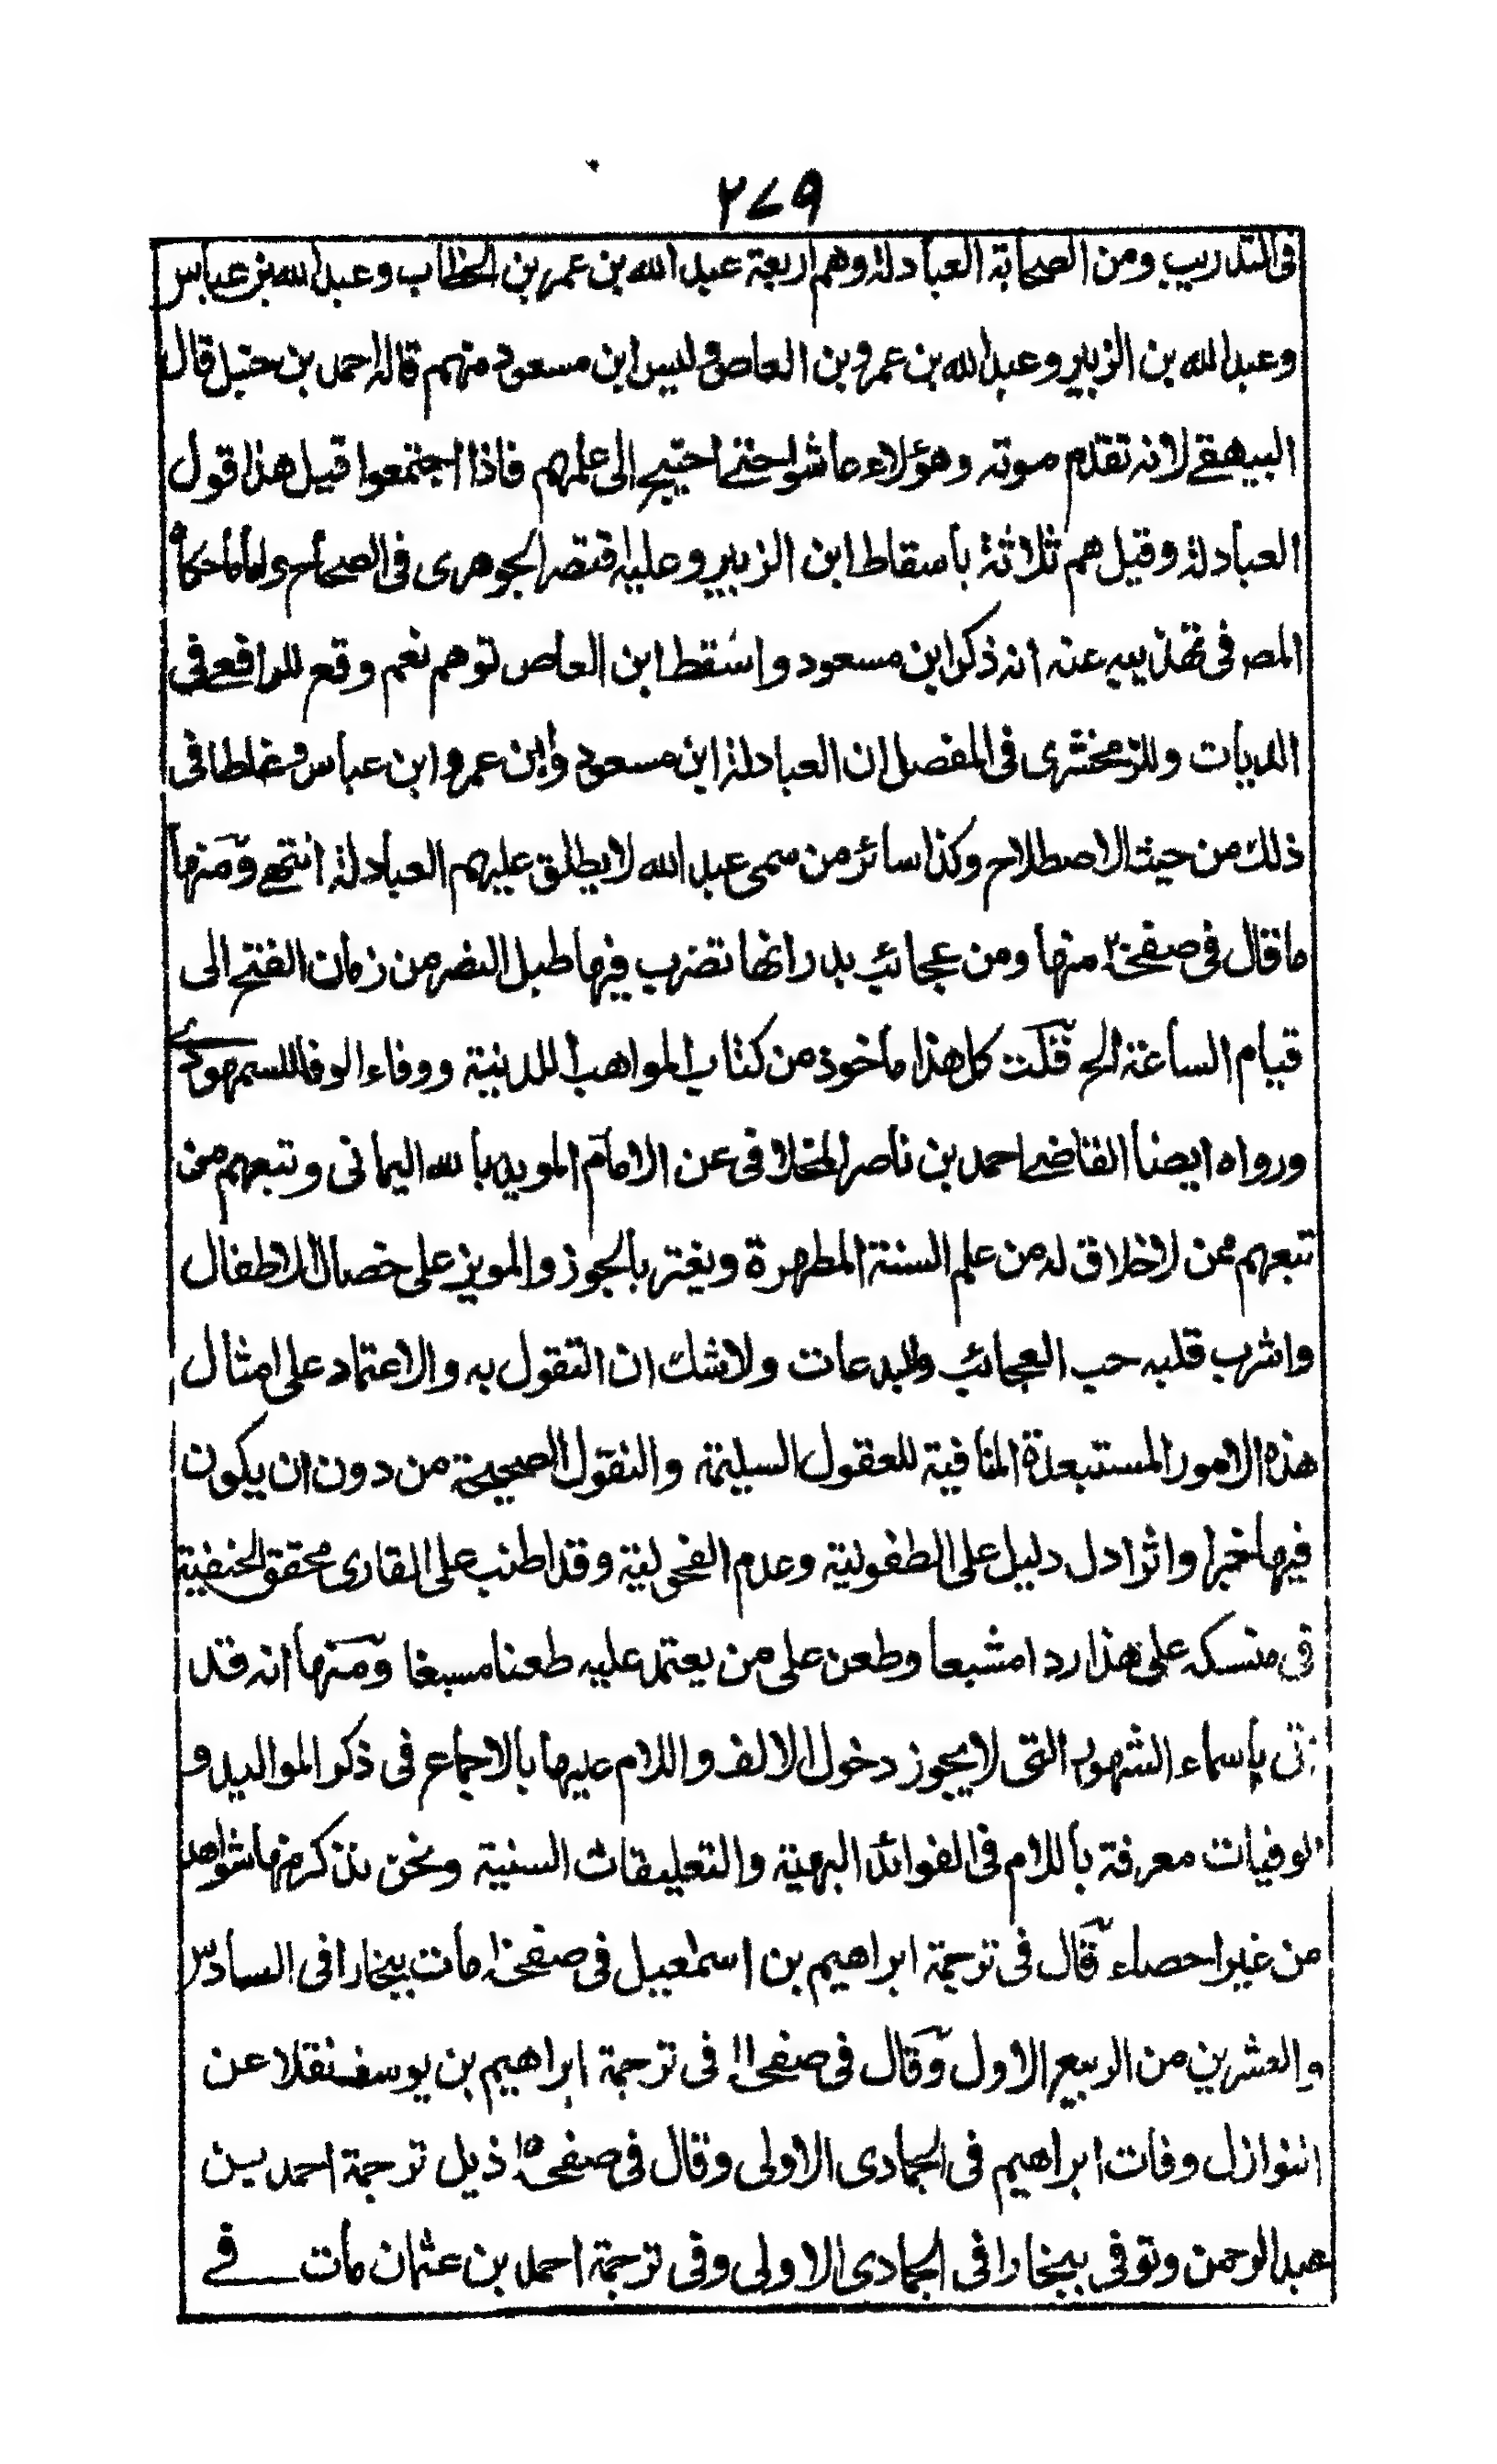 ٢٧٩
فى التدريب ومن الصحابة العبادلة وهم اربعة عبد الله بن عمر بن الخطاب وعبد الله بن عباس
وعبد الله بن الزبير وعبد الله بن عمرو بن العاص وليس ابن مسعود منهم قاله احمد بن حنبل قال
البيهقے لانه تقدم موته وهؤلاء عاشوا حتے احتيج الى علمهم فاذا اجتمعوا قيل هذا قول
العبادلة وقيل هم ثلاثة باسقاط ابن الزبير وعليه اقتصر الجوهرى فى الصحاح واما ما حكاه
المصـ فى تهذيبه عنه انه ذكر ابن مسعود واسقط ابن العاص توهم نعم وقع للرافعے فى
الديات وللزمخشرى فى المفصل ان العبادلة ابن مسعود وابن عمر وابن عباس وغلطا فى
ذلك من حيث الاصطلاح وكذا سائر من سمى عبد الله لا يطلق عليهم العبادلة انتهے ومنها
ما قال فى صفحة ٢ منها ومن عجائب بدر انها تضرب فيها طبل النصر من زمان الفتح الى
قيام الساعة الخ قلت كل هذا ماخوذ من كتاب المواهب اللدنية ووفاء الوفا للسمهودے
ورواه ايضا القاضے احمد بن ناصر المخلافى عن الامام المويد بالله اليمانى وتبعهم من
تبعهم ممن لا خلاق له من علم السنة المطهرة ويغتر بالجوز والمويز على خصال الاطفال
واشرب قلبه حب العجائب والبدعات ولا شك ان التقول به والاعتماد على امثال
هذه الامور المستبعدة المنافية للعقول السليمة والنقول الصحيحة من دون ان يكون
فيها خبر او اثر ادل دليل على الطفولية وعدم الفحولية وقد اطنب على القارى محقق الحنفية
فى منسكه على هذا ردا مشبعا وطعن على من يعتمد عليه طعنا مسبغا ومنها انه قد
اتى باسماء الشهور التى لا يجوز دخول الالف واللام عليها بالاجماع فى ذكر المواليد و
الوفيات معرفة باللام فى الفوائد البهية والتعليقات السنية ونحن نذكر منها شواهد
من غير احصاء قال فى ترجمة ابراهيم بن اسمعيل فى صفحة مات ببخارا فى السادس
والعشرين من الربيع الاول وقال فى صفحة ١١ فى ترجمة ابراهيم بن يوسف نقلا عن
النوازل وفات ابراهيم فى الجمادى الاولى وقال فى صفحة ١٥ ذيل ترجمة احمد بن
عبد الرحمن وتوفى ببخارا فى الجمادى الاولى وفى ترجمة احمد بن عثمان مات فے